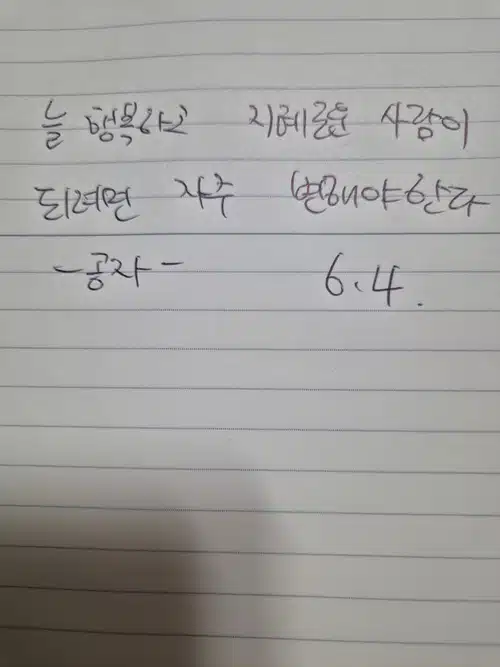 늘 행복하고 지혜로운 사람이
되려면 자주 변해야한다
-공자- 6.4.